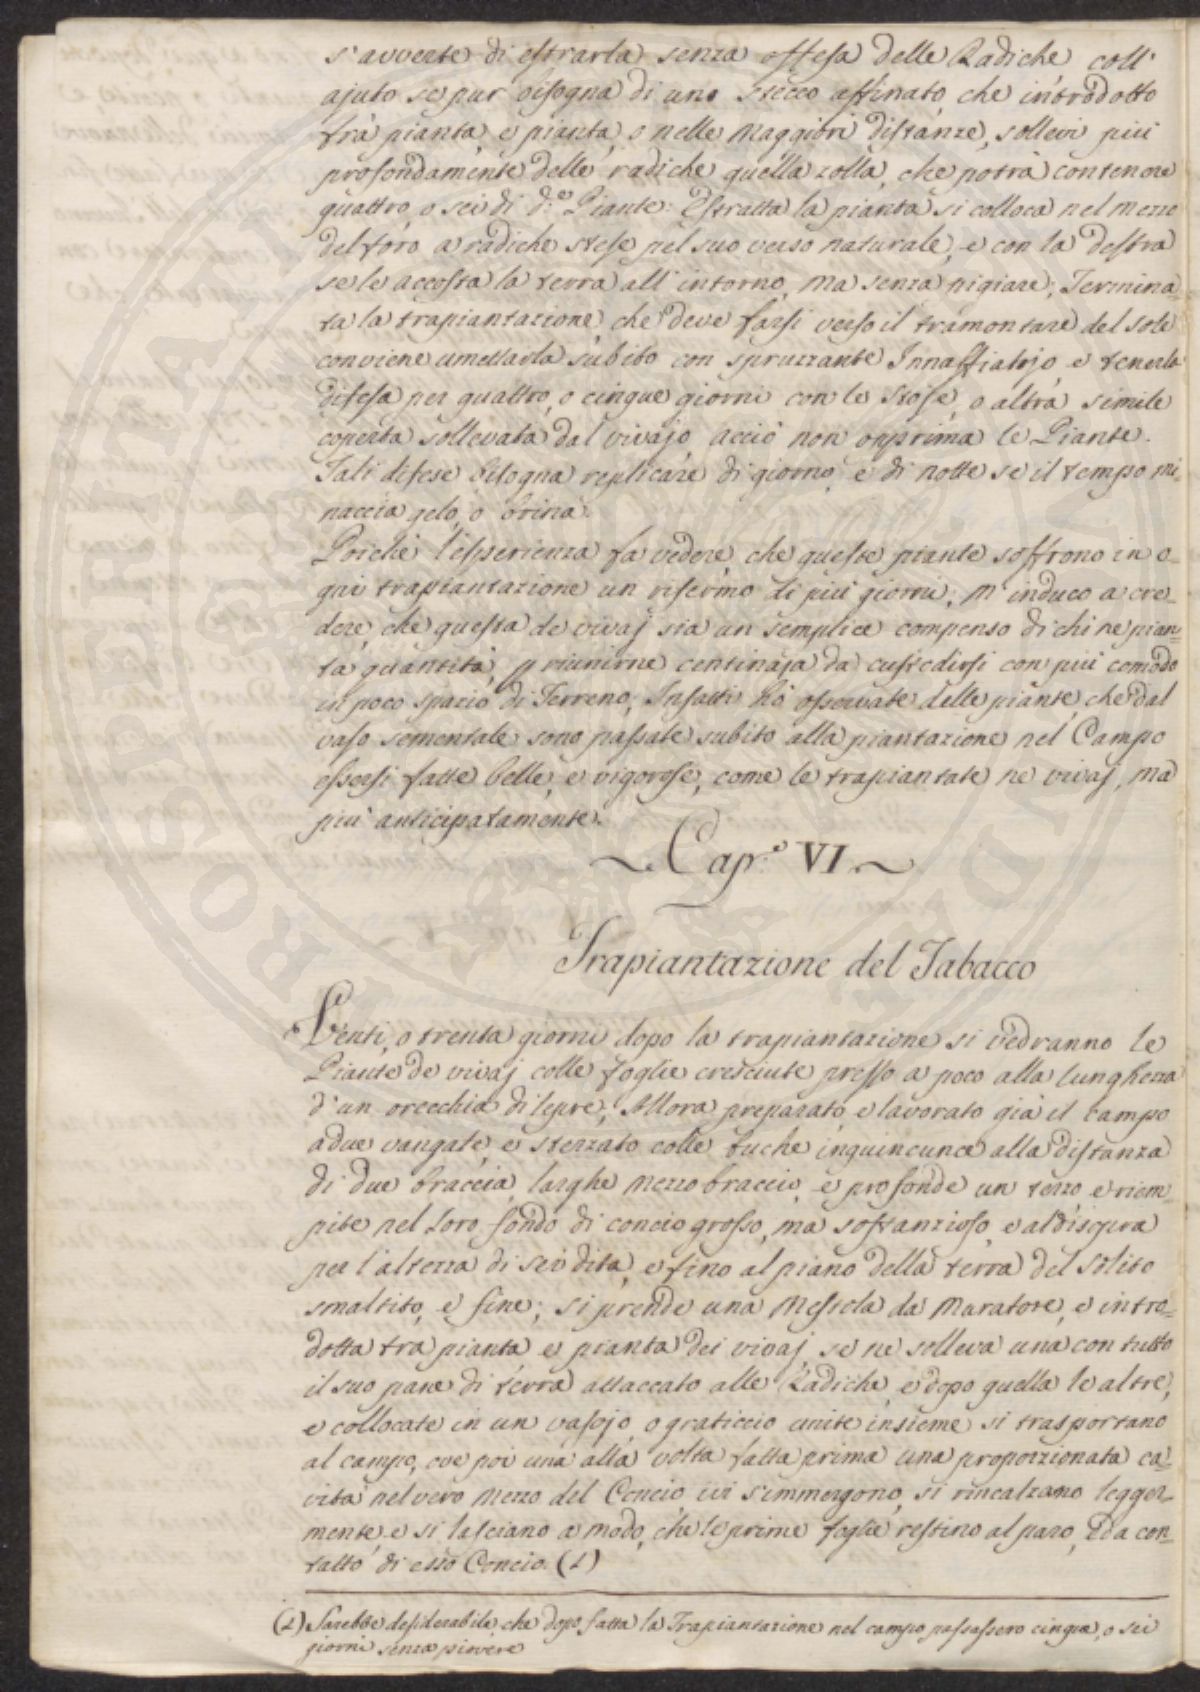 s'avverte di estrarla senza offesa delle Radiche coll'
ajuto se pur bisogna di uno stecco affinato, che introdotto
frà pianta, e pianta, o nelle maggiori distanze, sollevi più
profondamente delle radiche quella zolla, che potrà contenere
quattro, o sei di d.e Piante: Estratta la pianta si colloca nel mezzo
del foro a radiche stese nel suo verso naturale, e con la destra
se le accosta la terra all'intorno, ma senza pigiare; Termina-
ta la trapiantazione che deve farsi verso il tramontare del sole
conviene umettarla subito con spruzzante Innaffiatojo, e tenerla
difesa per quattro, o cinque giorni con le stoje, o altra simile
coperta sollevata dal vivajo acciò non opprima le Piante.
Tali difese bisogna replicare di giorno, e di notte se il tempo mi-
naccia gelo, o brina.
Poichè l'esperienza fa vedere, che queste piante soffrono in o-
gni trapiantazione un risermo di più giorni; m'induco a cre-
dere, che questa de vivaj sia un semplice compenso di chi ne pian-
ta quantità, p riunirne centinaja da custodirsi con più comodo
in poco spazio di Terreno; Infatti hò osservate delle piante che dal
vaso sementale sono passate subito alla piantazione nel Campo
essersi fatte belle, e vigorose, come le trapiantate ne vivaj, ma
più anticipatamente.
~ Cap.o VI ~
Trapiantazione del Tabacco
Venti, o trenta giorni dopo la trapiantazione si vedranno le
Piante de vivaj colle foglie cresciute presso a poco alla lunghezza
d'un orecchia di lepre; Allora preparato, e lavorato già il campo
a due vangate, e sterzato colle buche inquincunce alla distanza
di due braccia, larghe mezzo braccio, e profonde un terzo, e riem-
pite nel loro fondo di concio grosso, ma sostanzioso, e al disopra
per l'altezza di sei dita, e fino al piano della terra del solito
smaltito, e fine; si prende una Mestola da Muratore, e intro-
dotta tra pianta e pianta dei vivaj, se ne solleva una con tutto
il suo pane di terra attaccato alle Radiche, e dopo quella le altre,
e collocate in un vassojo, o graticcio unite insieme si trasportano
al campo, ove poi una alla volta fatta prima una proporzionata ca-
vità nel vero mezzo del Concio ivi s'immergono, si rincalzano legger-
mente e si lasciano a modo, che le prime foglie restino al paro, ed a con-
tatto di esso Concio. (1)
(1) Sarebbe desiderabile, che dopo fatta la Trapiantazione nel campo passassero cinque, o sei
giorni senza piovere